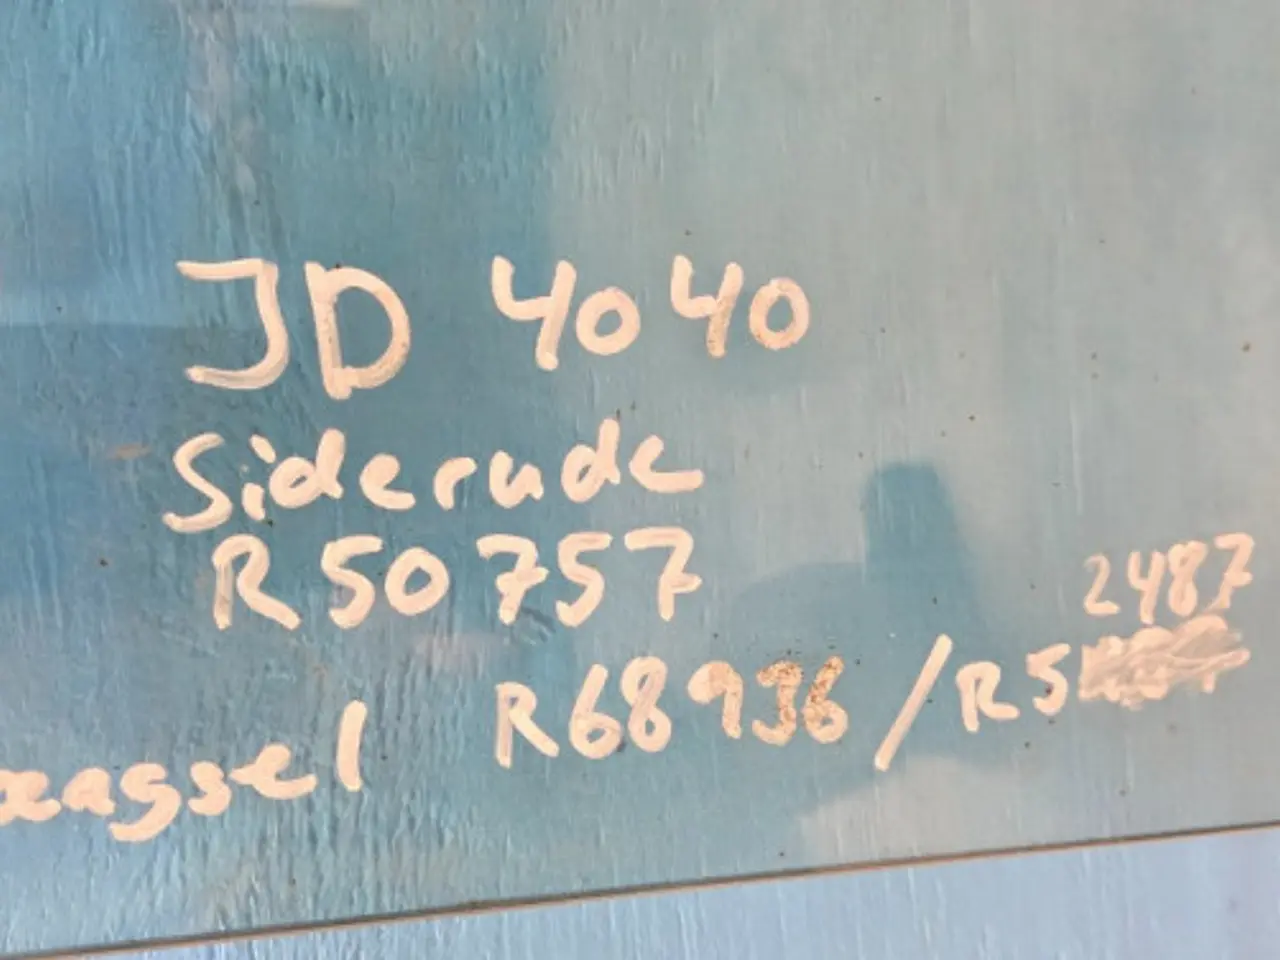 JD 4040
Siderude
R50757
2487
R68936/R5